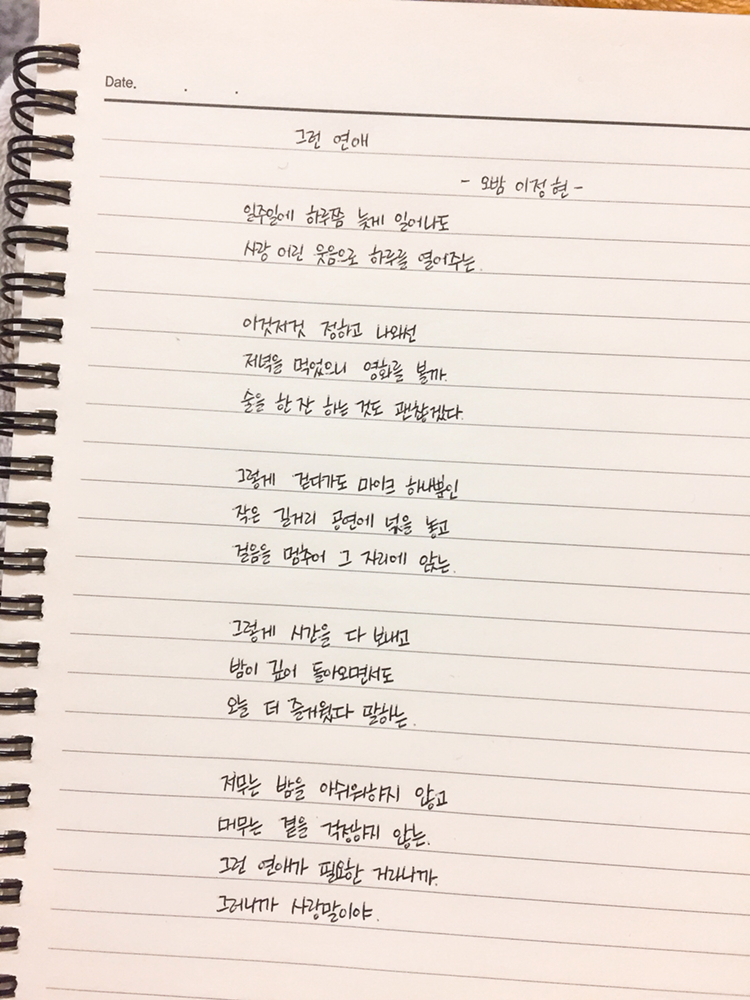 Date. . .
그런 연애
- 오밤 이정현 -
일주일에 하루쯤 늦게 일어나도
사랑 어린 웃음으로 하루를 열어주는.
이것저것 정하고 나와선
저녁을 먹었으니 영화를 볼까.
술을 한 잔 하는 것도 괜찮겠다.
그렇게 걷다가도 마이크 하나뿐인
작은 길거리 공연에 넋을 놓고
걸음을 멈추어 그 자리에 앉는.
그렇게 시간을 다 보내고
밤이 깊어 돌아오면서도
오늘 더 즐거웠다 말하는.
저무는 밤을 아쉬워하지 않고
머무는 곁을 걱정하지 않는.
그런 연애가 필요한 거라니까.
그러니까 사랑말이야.